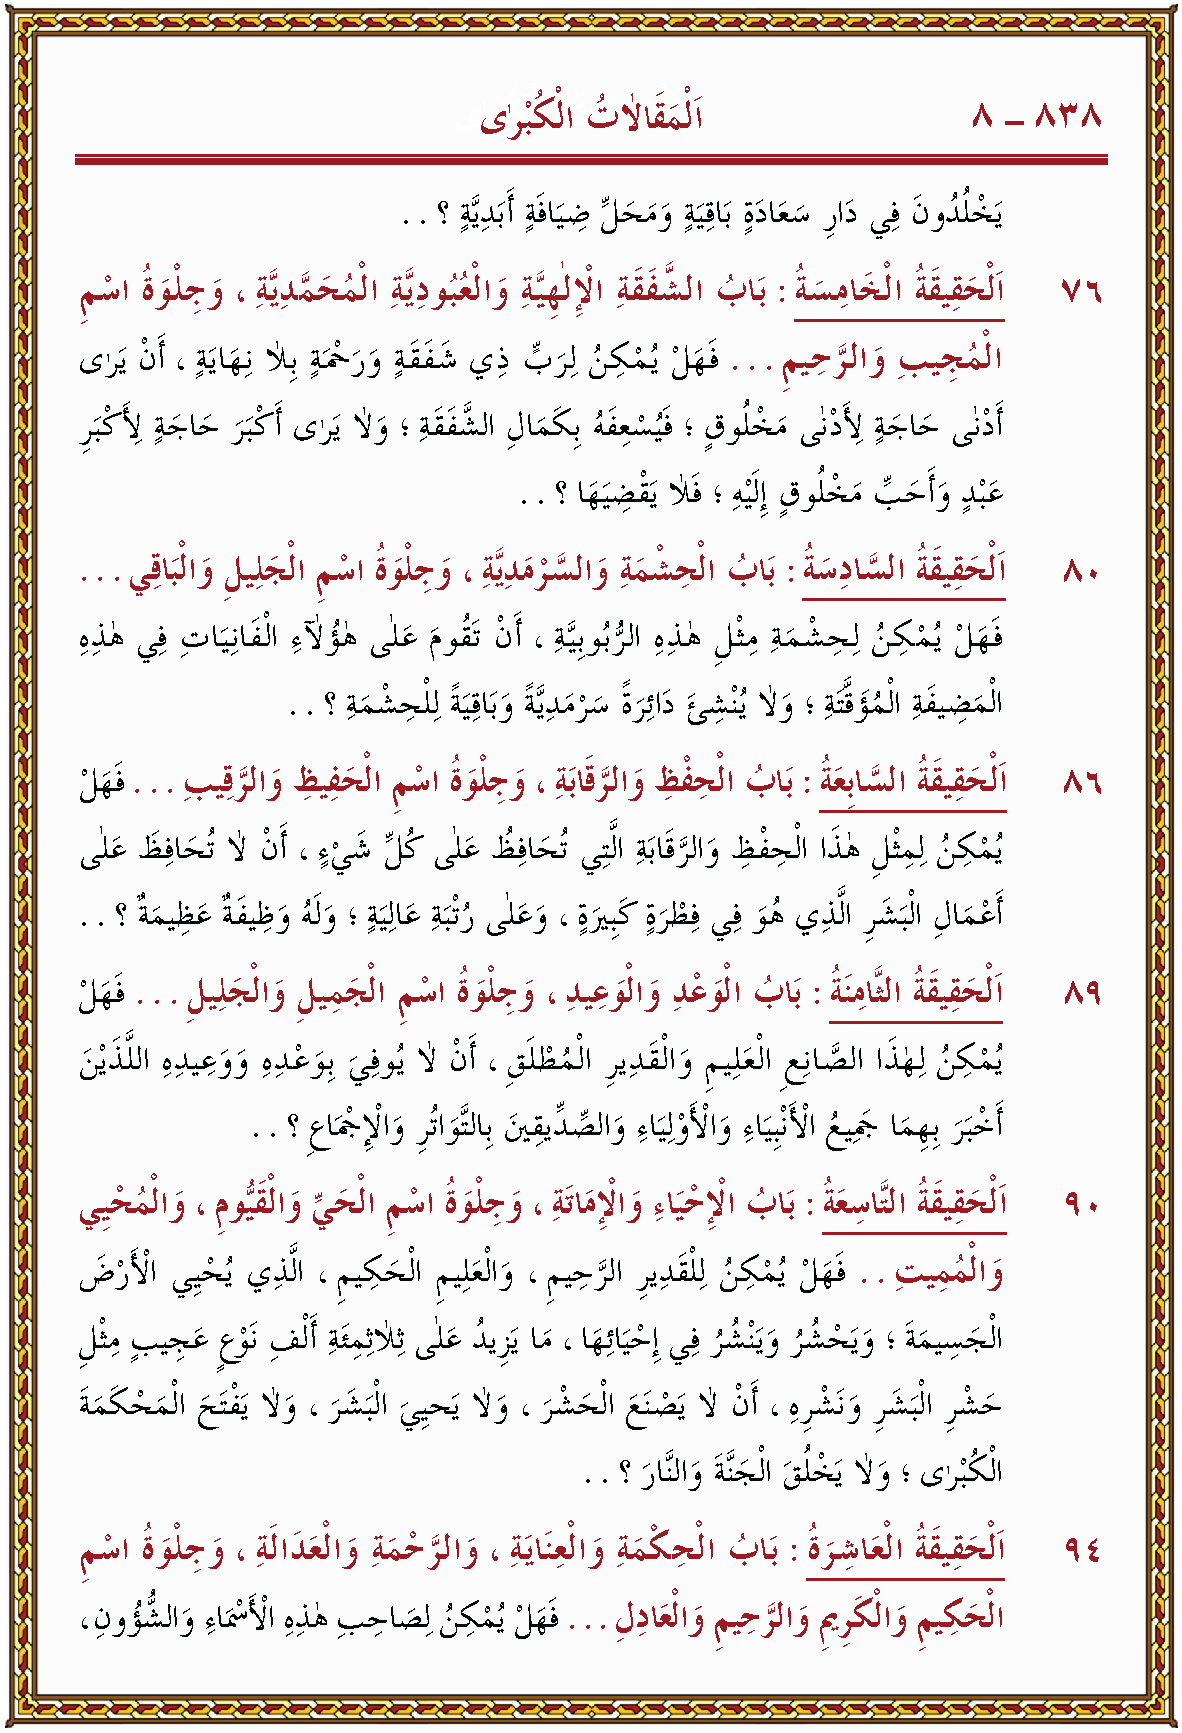 ٨ – ٨٣٨ اَلْمَقَالاٰتُ الْكُبْرٰى
يَخْلُدُونَ فِي دَارِ سَعَادَةٍ بَاقِيَةٍ وَمَحَلِّ ضِيَافَةٍ أَبَدِيَّةٍ ؟ . .
٧٦ اَلْحَقِيقَةُ الْخَامِسَةُ : بَابُ الشَّفَقَةِ الْإِلٰهِيَّةِ وَالْعُبُودِيَّةِ الْمُحَمَّدِيَّةِ ، وَجِلْوَةُ اسْمِ
الْمُجِيبِ وَالرَّحِيمِ . . . فَهَلْ يُمْكِنُ لِرَبٍّ ذِي شَفَقَةٍ وَرَحْمَةٍ بِلاٰ نِهَايَةٍ ، أَنْ يَرٰى
أَدْنٰى حَاجَةٍ لِأَدْنٰى مَخْلُوقٍ ؛ فَيُسْعِفَهُ بِكَمَالِ الشَّفَقَةِ ؛ وَلاٰ يَرٰى أَكْبَرَ حَاجَةٍ لِأَكْبَرِ
عَبْدٍ وَأَحَبِّ مَخْلُوقٍ إِلَيْهِ ؛ فَلاٰ يَقْضِيَهَا ؟ . .
٨٠ اَلْحَقِيقَةُ السَّادِسَةُ : بَابُ الْحِشْمَةِ وَالسَّرْمَدِيَّةِ ، وَجِلْوَةُ اسْمِ الْجَلِيلِ وَالْبَاقِي . . .
فَهَلْ يُمْكِنُ لِحِشْمَةِ مِثْلِ هٰذِهِ الرُّبُوبِيَّةِ ، أَنْ تَقُومَ عَلٰى هٰؤُلآٰءِ الْفَانِيَاتِ فِي هٰذِهِ
الْمَضِيفَةِ الْمُؤَقَّتَةِ ؛ وَلاٰ يُنْشِئَ دَائِرَةً سَرْمَدِيَّةً وَبَاقِيَةً لِلْحِشْمَةِ ؟ . .
٨٦ اَلْحَقِيقَةُ السَّابِعَةُ : بَابُ الْحِفْظِ وَالرَّقَابَةِ ، وَجِلْوَةُ اسْمِ الْحَفِيظِ وَالرَّقِيبِ . . . فَهَلْ
يُمْكِنُ لِمِثْلِ هٰذَا الْحِفْظِ وَالرَّقَابَةِ الَّتِي تُحَافِظُ عَلٰى كُلِّ شَيْءٍ ، أَنْ لاٰ تُحَافِظَ عَلٰى
أَعْمَالِ الْبَشَرِ الَّذِي هُوَ فِي فِطْرَةٍ كَبِيرَةٍ ، وَعَلٰى رُتْبَةٍ عَالِيَةٍ ؛ وَلَهُ وَظِيفَةٌ عَظِيمَةٌ ؟ . .
٨٩ اَلْحَقِيقَةُ الثَّامِنَةُ : بَابُ الْوَعْدِ وَالْوَعِيدِ ، وَجِلْوَةُ اسْمِ الْجَمِيلِ وَالْجَلِيلِ . . . فَهَلْ
يُمْكِنُ لِهٰذَا الصَّانِعِ الْعَلِيمِ وَالْقَدِيرِ الْمُطْلَقِ ، أَنْ لاٰ يُوفِيَ بِوَعْدِهِ وَوَعِيدِهِ اللَّذَيْنَ
أَخْبَرَ بِهِمَا جَمِيعُ الْأَنْبِيَاءِ وَالْأَوْلِيَاءِ وَالصِّدِّيقِينَ بِالتَّوَاتُرِ وَالْإِجْمَاعِ ؟ . .
٩٠ اَلْحَقِيقَةُ التَّاسِعَةُ : بَابُ الْإِحْيَاءِ وَالْإِمَاتَةِ ، وَجِلْوَةُ اسْمِ الْحَيِّ وَالْقَيُّومِ ، وَالْمُحْيِي
وَالْمُمِيتِ . . فَهَلْ يُمْكِنُ لِلْقَدِيرِ الرَّحِيمِ ، وَالْعَلِيمِ الْحَكِيمِ ، الَّذِي يُحْيِي الْأَرْضَ
الْجَسِيمَةَ ؛ وَيَحْشُرُ وَيَنْشُرُ فِي إِحْيَائِهَا ، مَا يَزِيدُ عَلٰى ثِلاٰثِمِئَةِ أَلْفِ نَوْعٍ عَجِيبٍ مِثْلِ
حَشْرِ الْبَشَرِ وَنَشْرِهِ ، أَنْ لاٰ يَصْنَعَ الْحَشْرَ ، وَلاٰ يَحْيِيَ الْبَشَرَ ، وَلاٰ يَفْتَحَ الْمَحْكَمَةَ
الْكُبْرٰى ؛ وَلاٰ يَخْلُقَ الْجَنَّةَ وَالنَّارَ ؟ . .
٩٤ اَلْحَقِيقَةُ الْعَاشِرَةُ : بَابُ الْحِكْمَةِ وَالْعِنَايَةِ ، وَالرَّحْمَةِ وَالْعَدَالَةِ ، وَجِلْوَةُ اسْمِ
الْحَكِيمِ وَالْكَرِيمِ وَالرَّحِيمِ وَالْعَادِلِ . . . فَهَلْ يُمْكِنُ لِصَاحِبِ هٰذِهِ الْأَسْمَاءِ وَالشُّؤُونِ ،